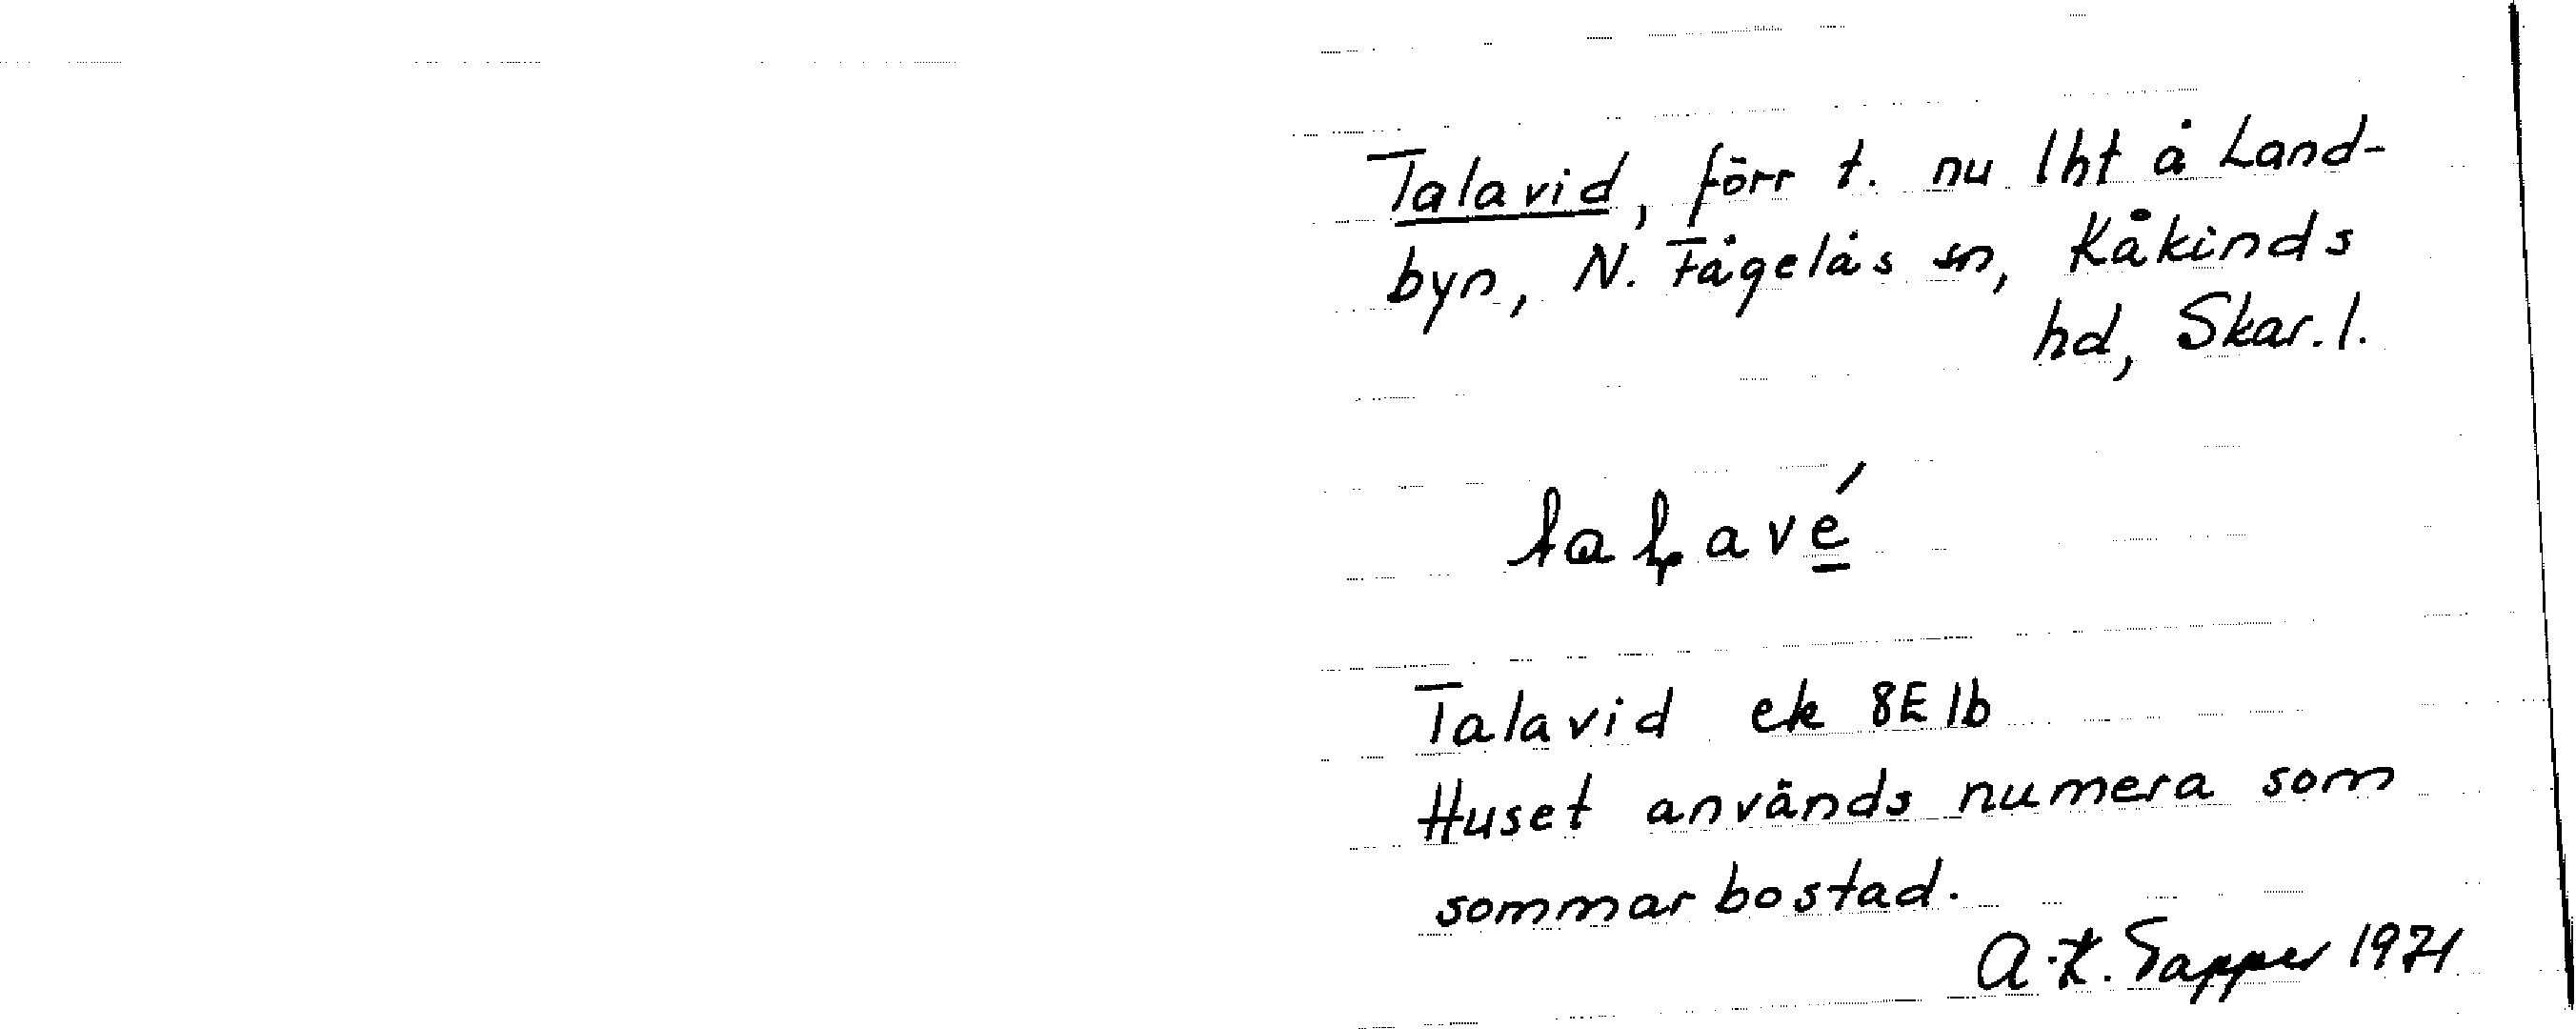 Talavid, förr t. nu lht å Land-
byn, N. Fågelås sn, Kåkinds
hd, Skar. l.
Talavid ek 8E 1b
Huset används numera som
sommarbostad.
A-K. Tapper 1971